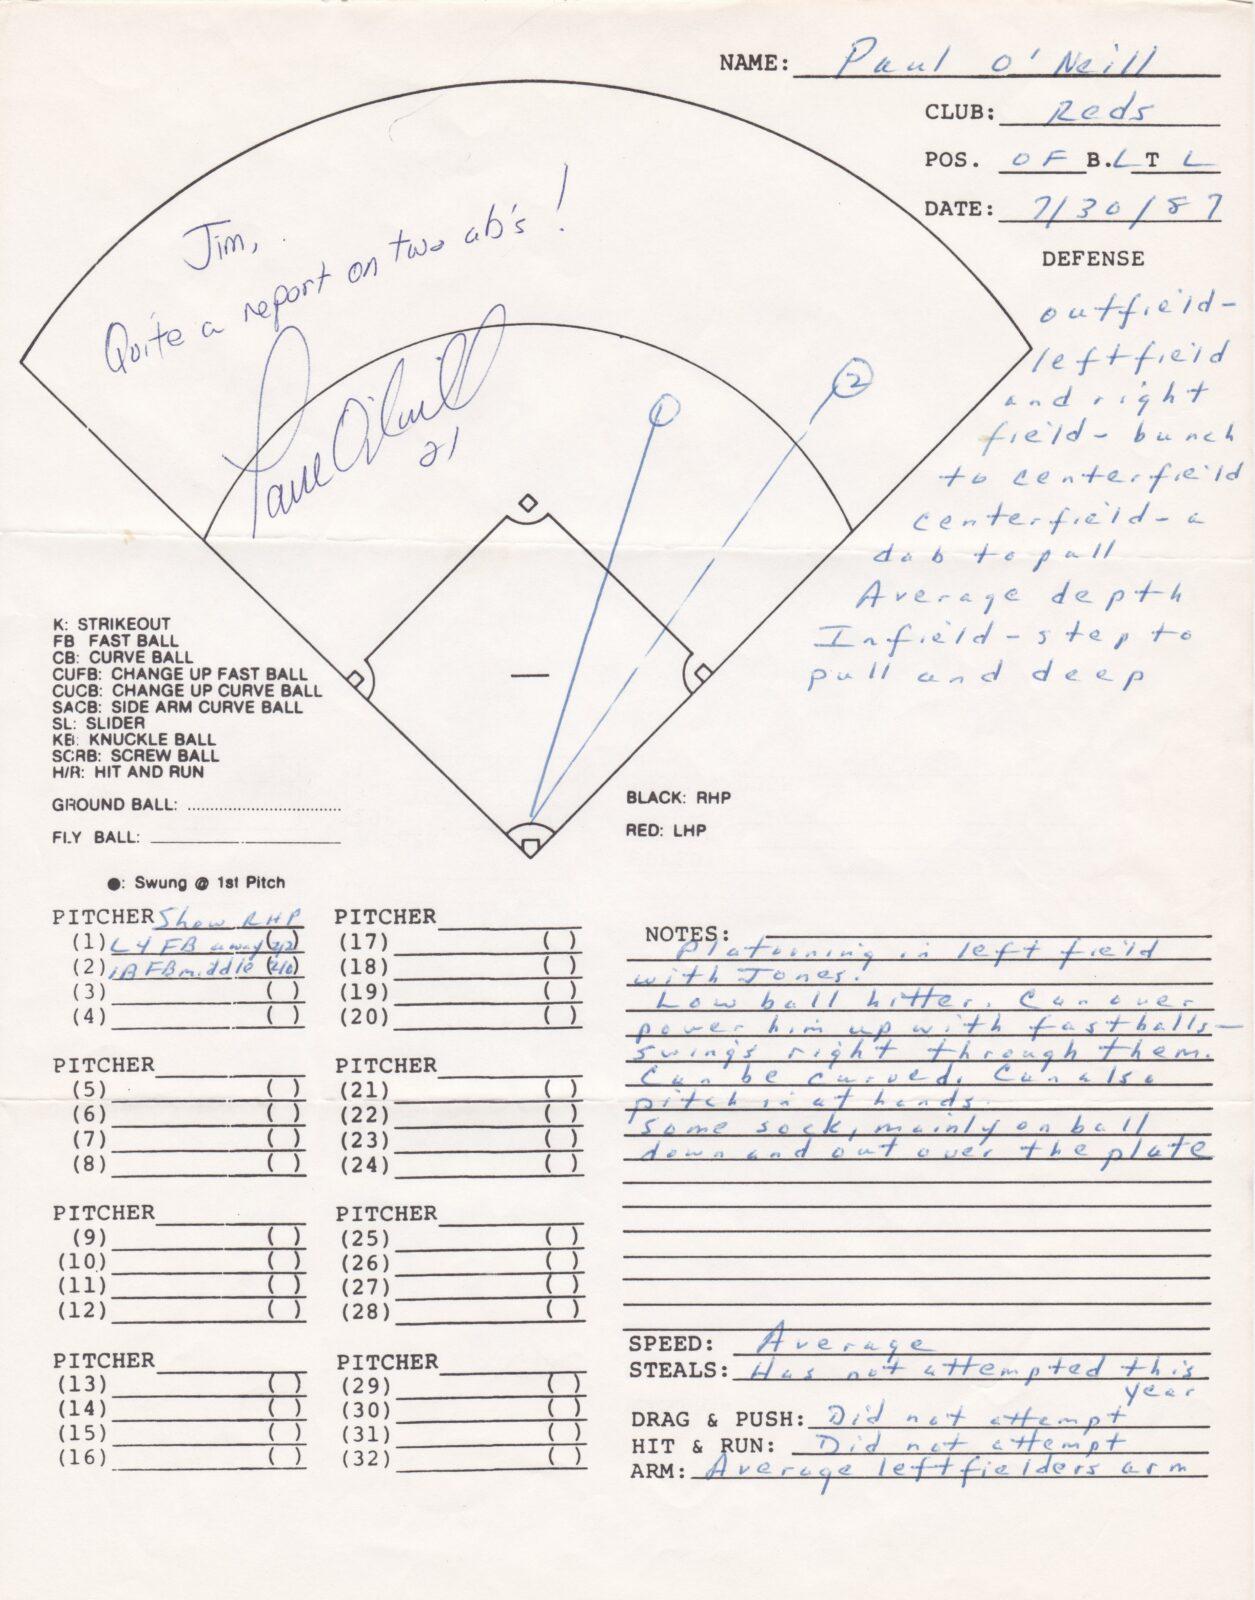 NAME: Paul O'Neill
CLUB: Reds
POS. OF B. L T L
DATE: 7/30/87
DEFENSE
outfield-
leftfield
and right
field- bunch
to centerfield
centerfield- a
dab to pull
Average depth
Infield- step to
pull and deep
Jim,
Quite a report on two ab's!
Paul O'Neill
21
1
2
K: STRIKEOUT
FB FAST BALL
CB: CURVE BALL
CUFB: CHANGE UP FAST BALL
CUCB: CHANGE UP CURVE BALL
SACB: SIDE ARM CURVE BALL
SL: SLIDER
KB: KNUCKLE BALL
SCRB: SCREW BALL
H/R: HIT AND RUN
GROUND BALL:
FLY BALL:
BLACK: RHP
RED: LHP
●: Swung @ 1st Pitch
PITCHER Show RHP
(1) L4 FB away ( )
(2) FB middle ( )
(3) ( )
(4) ( )
PITCHER
(5) ( )
(6) ( )
(7) ( )
(8) ( )
PITCHER
(9) ( )
(10) ( )
(11) ( )
(12) ( )
PITCHER
(13) ( )
(14) ( )
(15) ( )
(16) ( )
PITCHER
(17) ( )
(18) ( )
(19) ( )
(20) ( )
PITCHER
(21) ( )
(22) ( )
(23) ( )
(24) ( )
PITCHER
(25) ( )
(26) ( )
(27) ( )
(28) ( )
PITCHER
(29) ( )
(30) ( )
(31) ( )
(32) ( )
NOTES:
Platooning in left field
with Jones.
Low ball hitter. Can over
power him up with fastballs-
swings right through them.
Can be curved. Can also
pitch in at hands.
Some sock, mainly on ball
down and out over the plate
SPEED: Average
STEALS: Has not attempted this
year
DRAG & PUSH: Did not attempt
HIT & RUN: Did not attempt
ARM: Average leftfielders arm